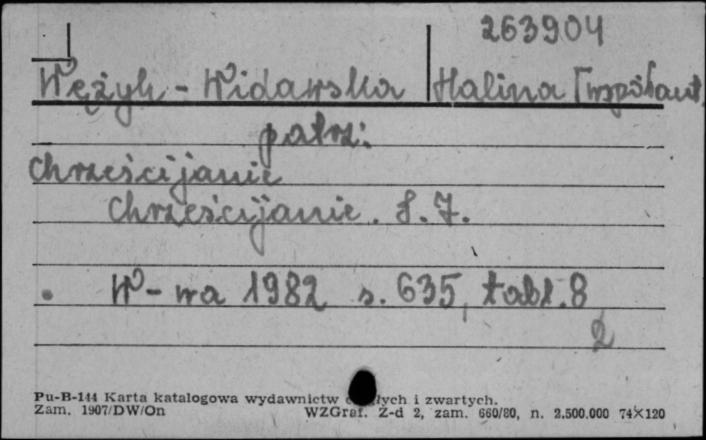 263904
Wężyk-Widawska Halina [współaut
patrz:
Chrześcijanie
Chrześcijanie.
W-wa 1982 s. 635, tabl. 8
2
Pu-B-144 Karta katalogowa wydawnictw i zwartych.
Zam. 1907/DW/On WZGraf. Z-d 2, zam. 660/80, n. 2.500.000 74×120